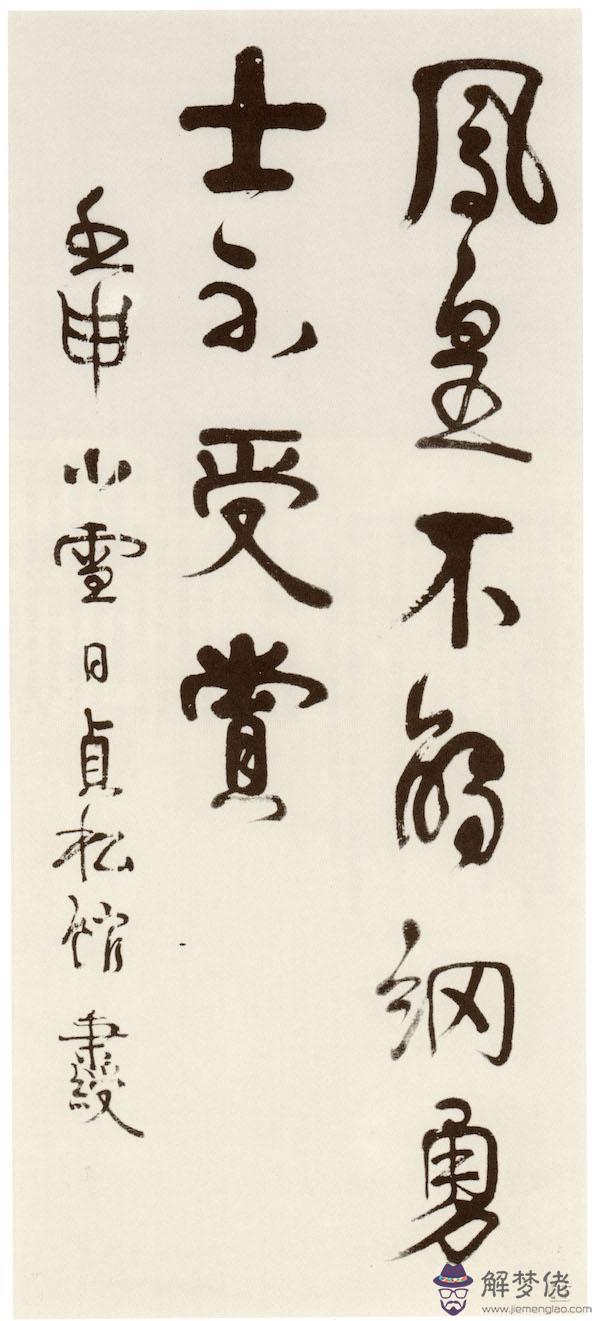 鳳皇不勇
士不受賞
壬申小雪日貞松館秉綬
解梦佬
www.jiemenglao.com